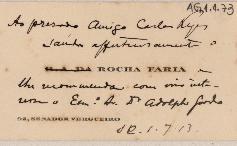 AG.1.1.73
Ao presado Amigo Carlos Reys
saúda affectuosamente o
R. A. DA ROCHA FARIA
lhe recommenda com o
o Exmo. Sr. Dr. Adolpho Gordo
98, SENADOR VERGUEIRO
1.7.13.